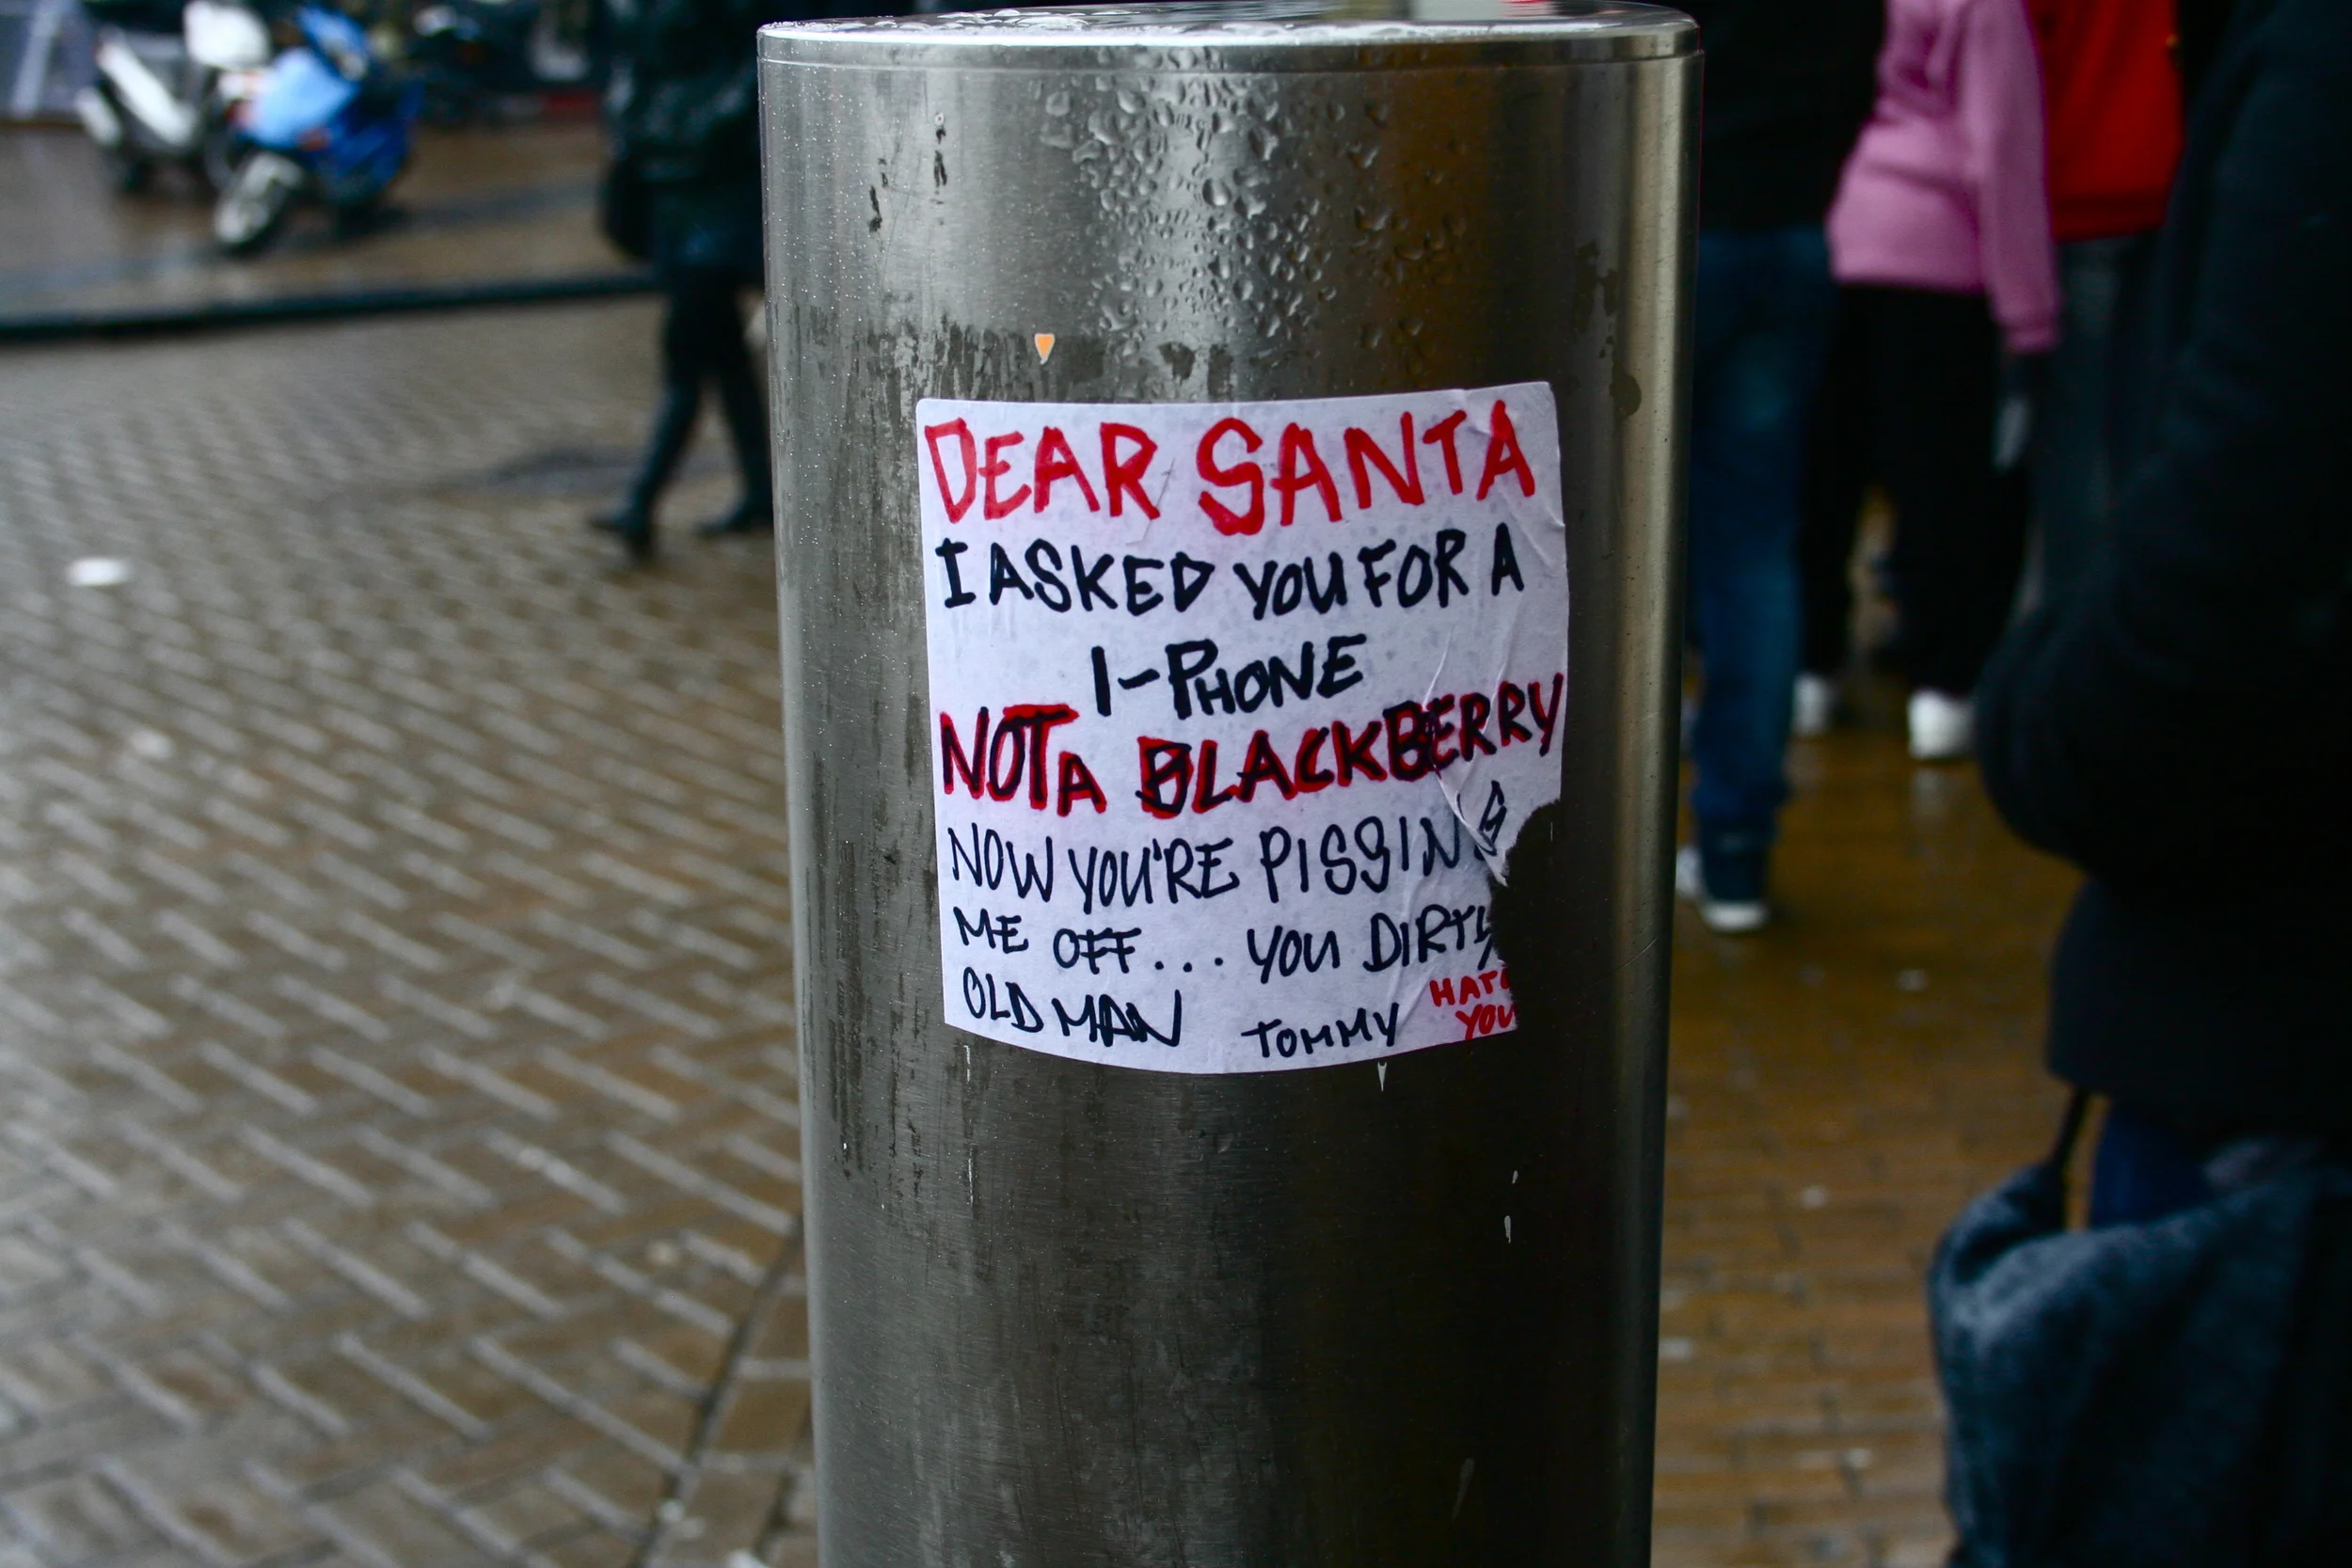 DEAR SANTA
I ASKED YOU FOR A
I-PHONE
NOT A BLACKBERRY
NOW YOU'RE PISSING
ME OFF... YOU DIRTY
OLD MAN TOMMY
HATE
YOU